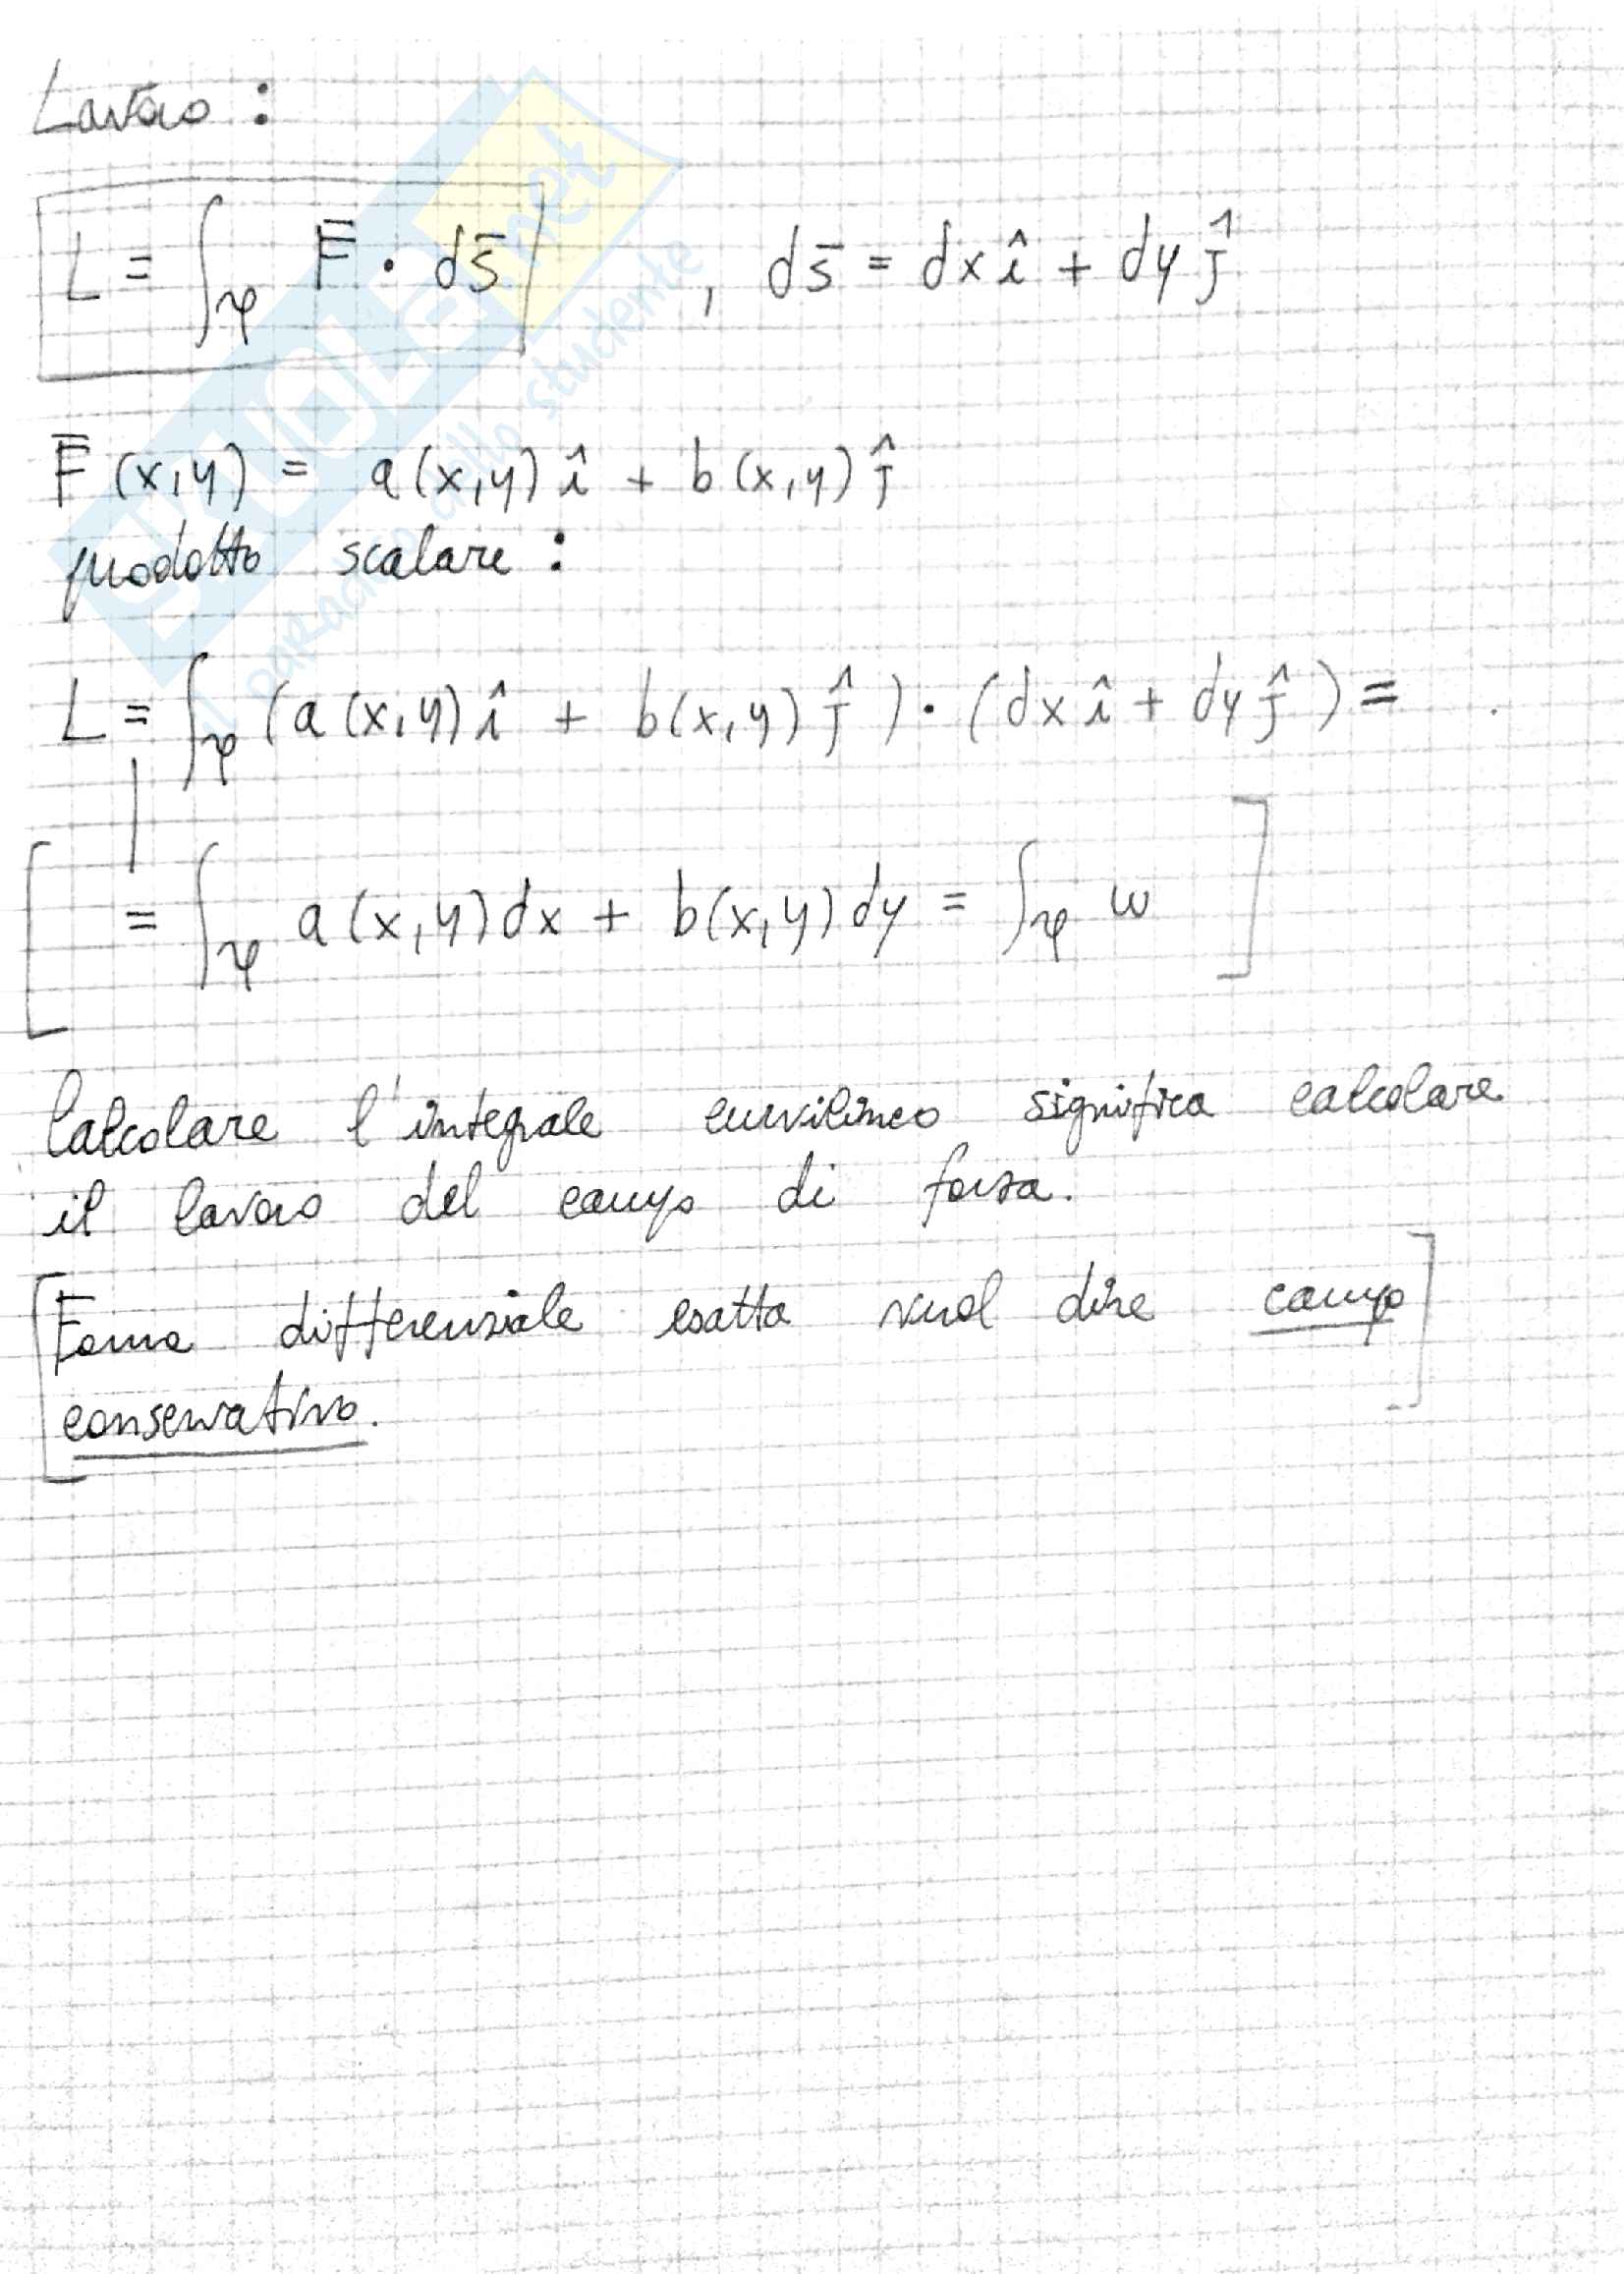 Lavoro :
L = ∫φ F̄ · ds̄ , ds̄ = dx î + dy ĵ
F̄ (x,y) = a(x,y) î + b(x,y) ĵ
prodotto scalare :
L = ∫φ (a(x,y) î + b(x,y) ĵ ) · (dx î + dy ĵ ) =
= ∫φ a(x,y) dx + b(x,y) dy = ∫φ ω
Calcolare l'integrale curvilineo significa calcolare
il lavoro del campo di forza.
Forma differenziale esatta vuol dire campo
conservativo.
SKUOLA.net
il paradiso dello studente